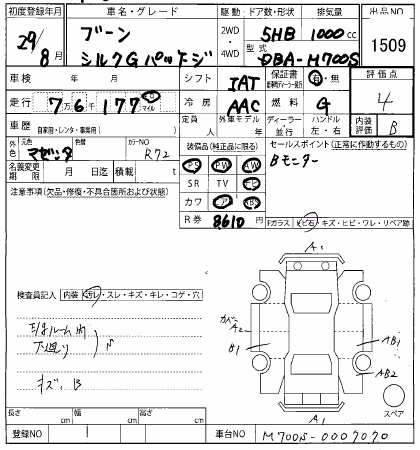 初度登録年月 車名・グレード 駆動 ドア数・形状 排気量 出品NO
29/8月 ブーン シルクGパッケージ 2WD・4WD 5HB 1000CC 1509
型式 DBA-M700S
車検 年 月 シフト IAT 保証書 有・無 評価点 4
走行 7万6千177 キロ マイル 冷房 AAC 燃料 G
車歴 自家用・レンタ・事業用( ) 定員 人 外車モデル 年 ディーラー・並行 ハンドル 左・右 内装評価 B
外色 元色 マゼンタ 色替 カラーNO R72
装備品(純正品に限る) セールスポイント(正常に作動するもの)
名義変更期限 月 日迄 積載 t
PS PW Bモニター
SR TV ナビ
注意事項(欠品・修復・不具合箇所および状態)
カワ
R券 8610
Fガラス ヒ石・キズ・ヒビ・ワレ・リペア跡
検査員記入 内装 汚レ・スレ・キズ・キレ・コゲ・穴
下廻り
キズ B
A1
カバー A2
B1
AB1
AB2
A1
スペア
長さ cm 幅 cm 高さ cm
登録NO 車台NO M700S-0007070